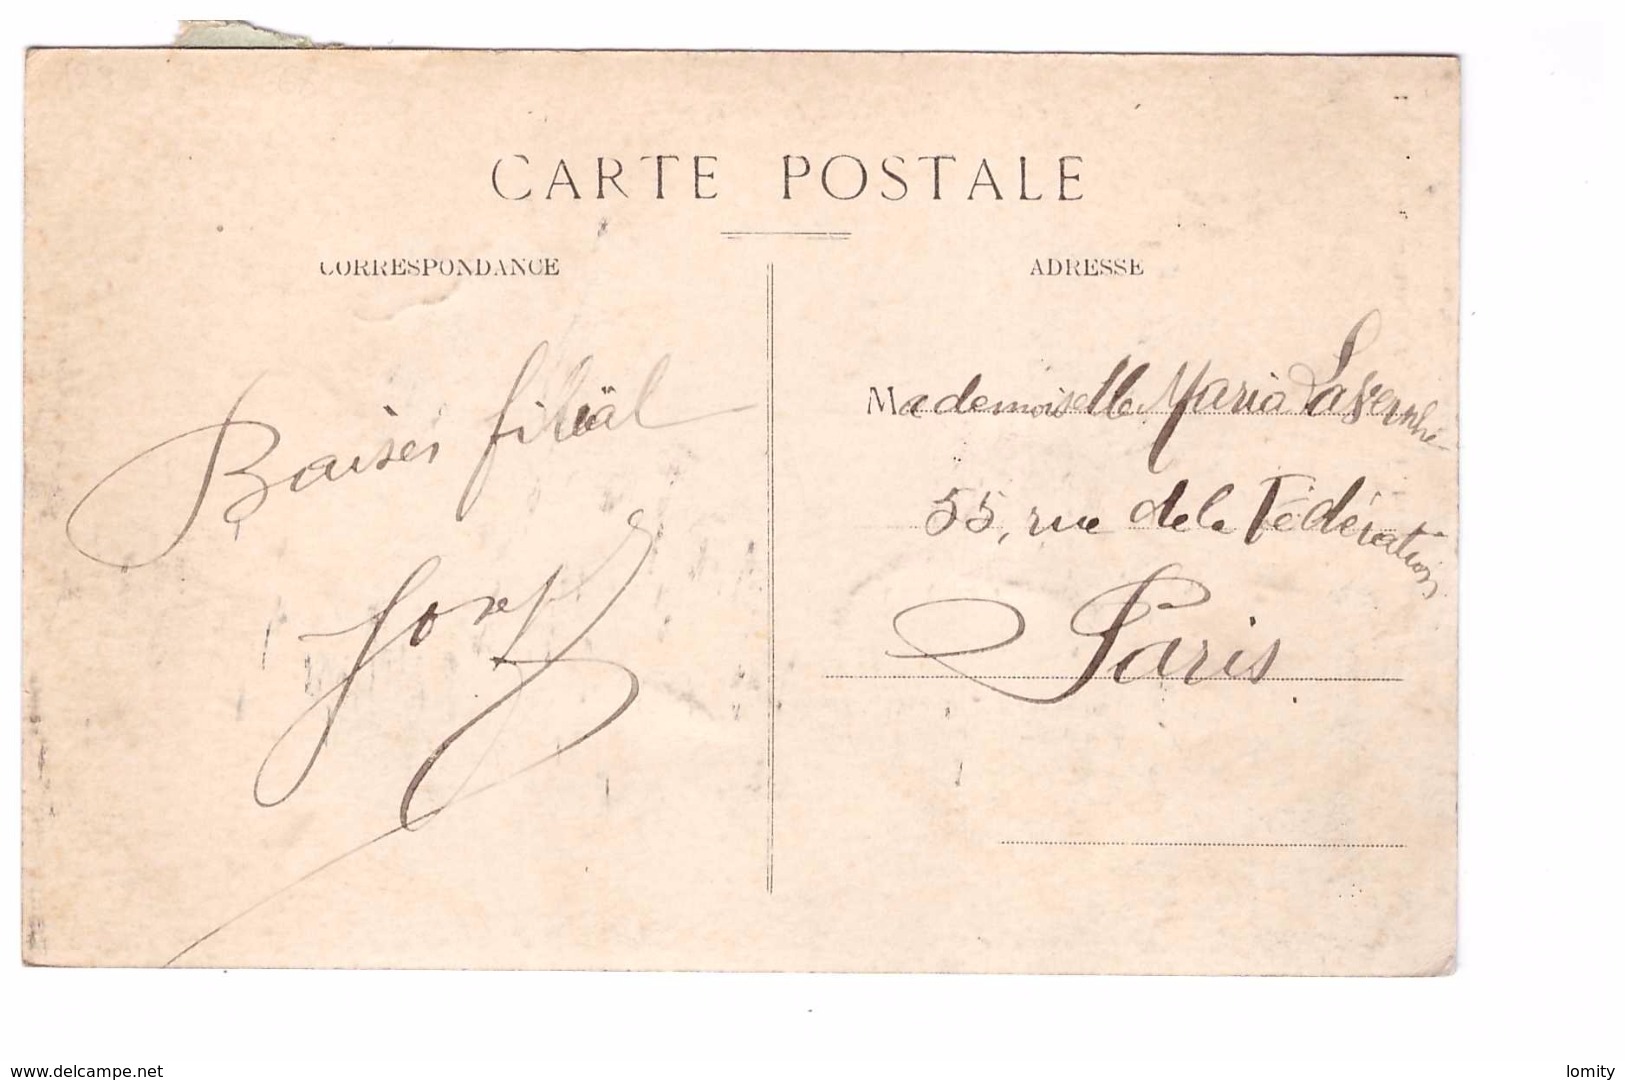 CARTE POSTALE
CORRESPONDANCE
ADRESSE
Baiser filiäl
Joseph
Mademoiselle Maria
55, rue de la Fédération
Paris
www.delcampe.net
lomity